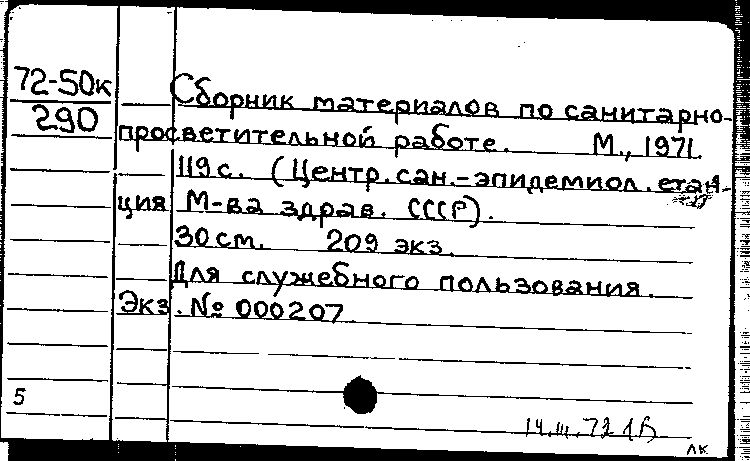 72-50к
290
Сборник материалов по санитарно-
просветительной работе. М., 1971.
119 с. (Центр. сан.-эпидемиол. стан-
ция М-ва здрав. СССР).
30 см. 209 экз.
Для служебного пользования.
Экз. № 000207
5
14.III.72 1В
ЛК